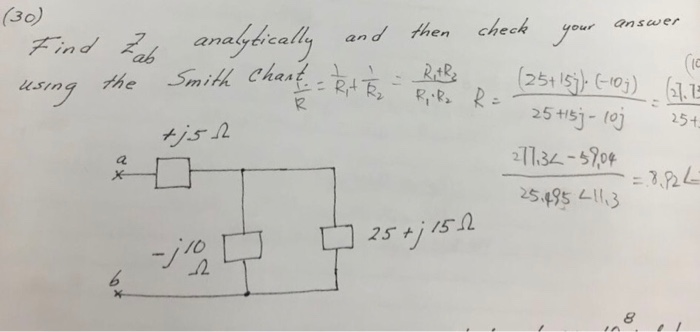 (30)
Find Zab analytically and then check your answer
using the Smith Chart.
1/R = 1/R1 + 1/R2 = R1+R2 / R1·R2
R = (25+15j)·(-10j) / 25+15j-10j =
25+
277.3∠-59.04 / 25.495∠11.3 =
+j5 Ω
a
-j10
Ω
25+j15 Ω
b
8